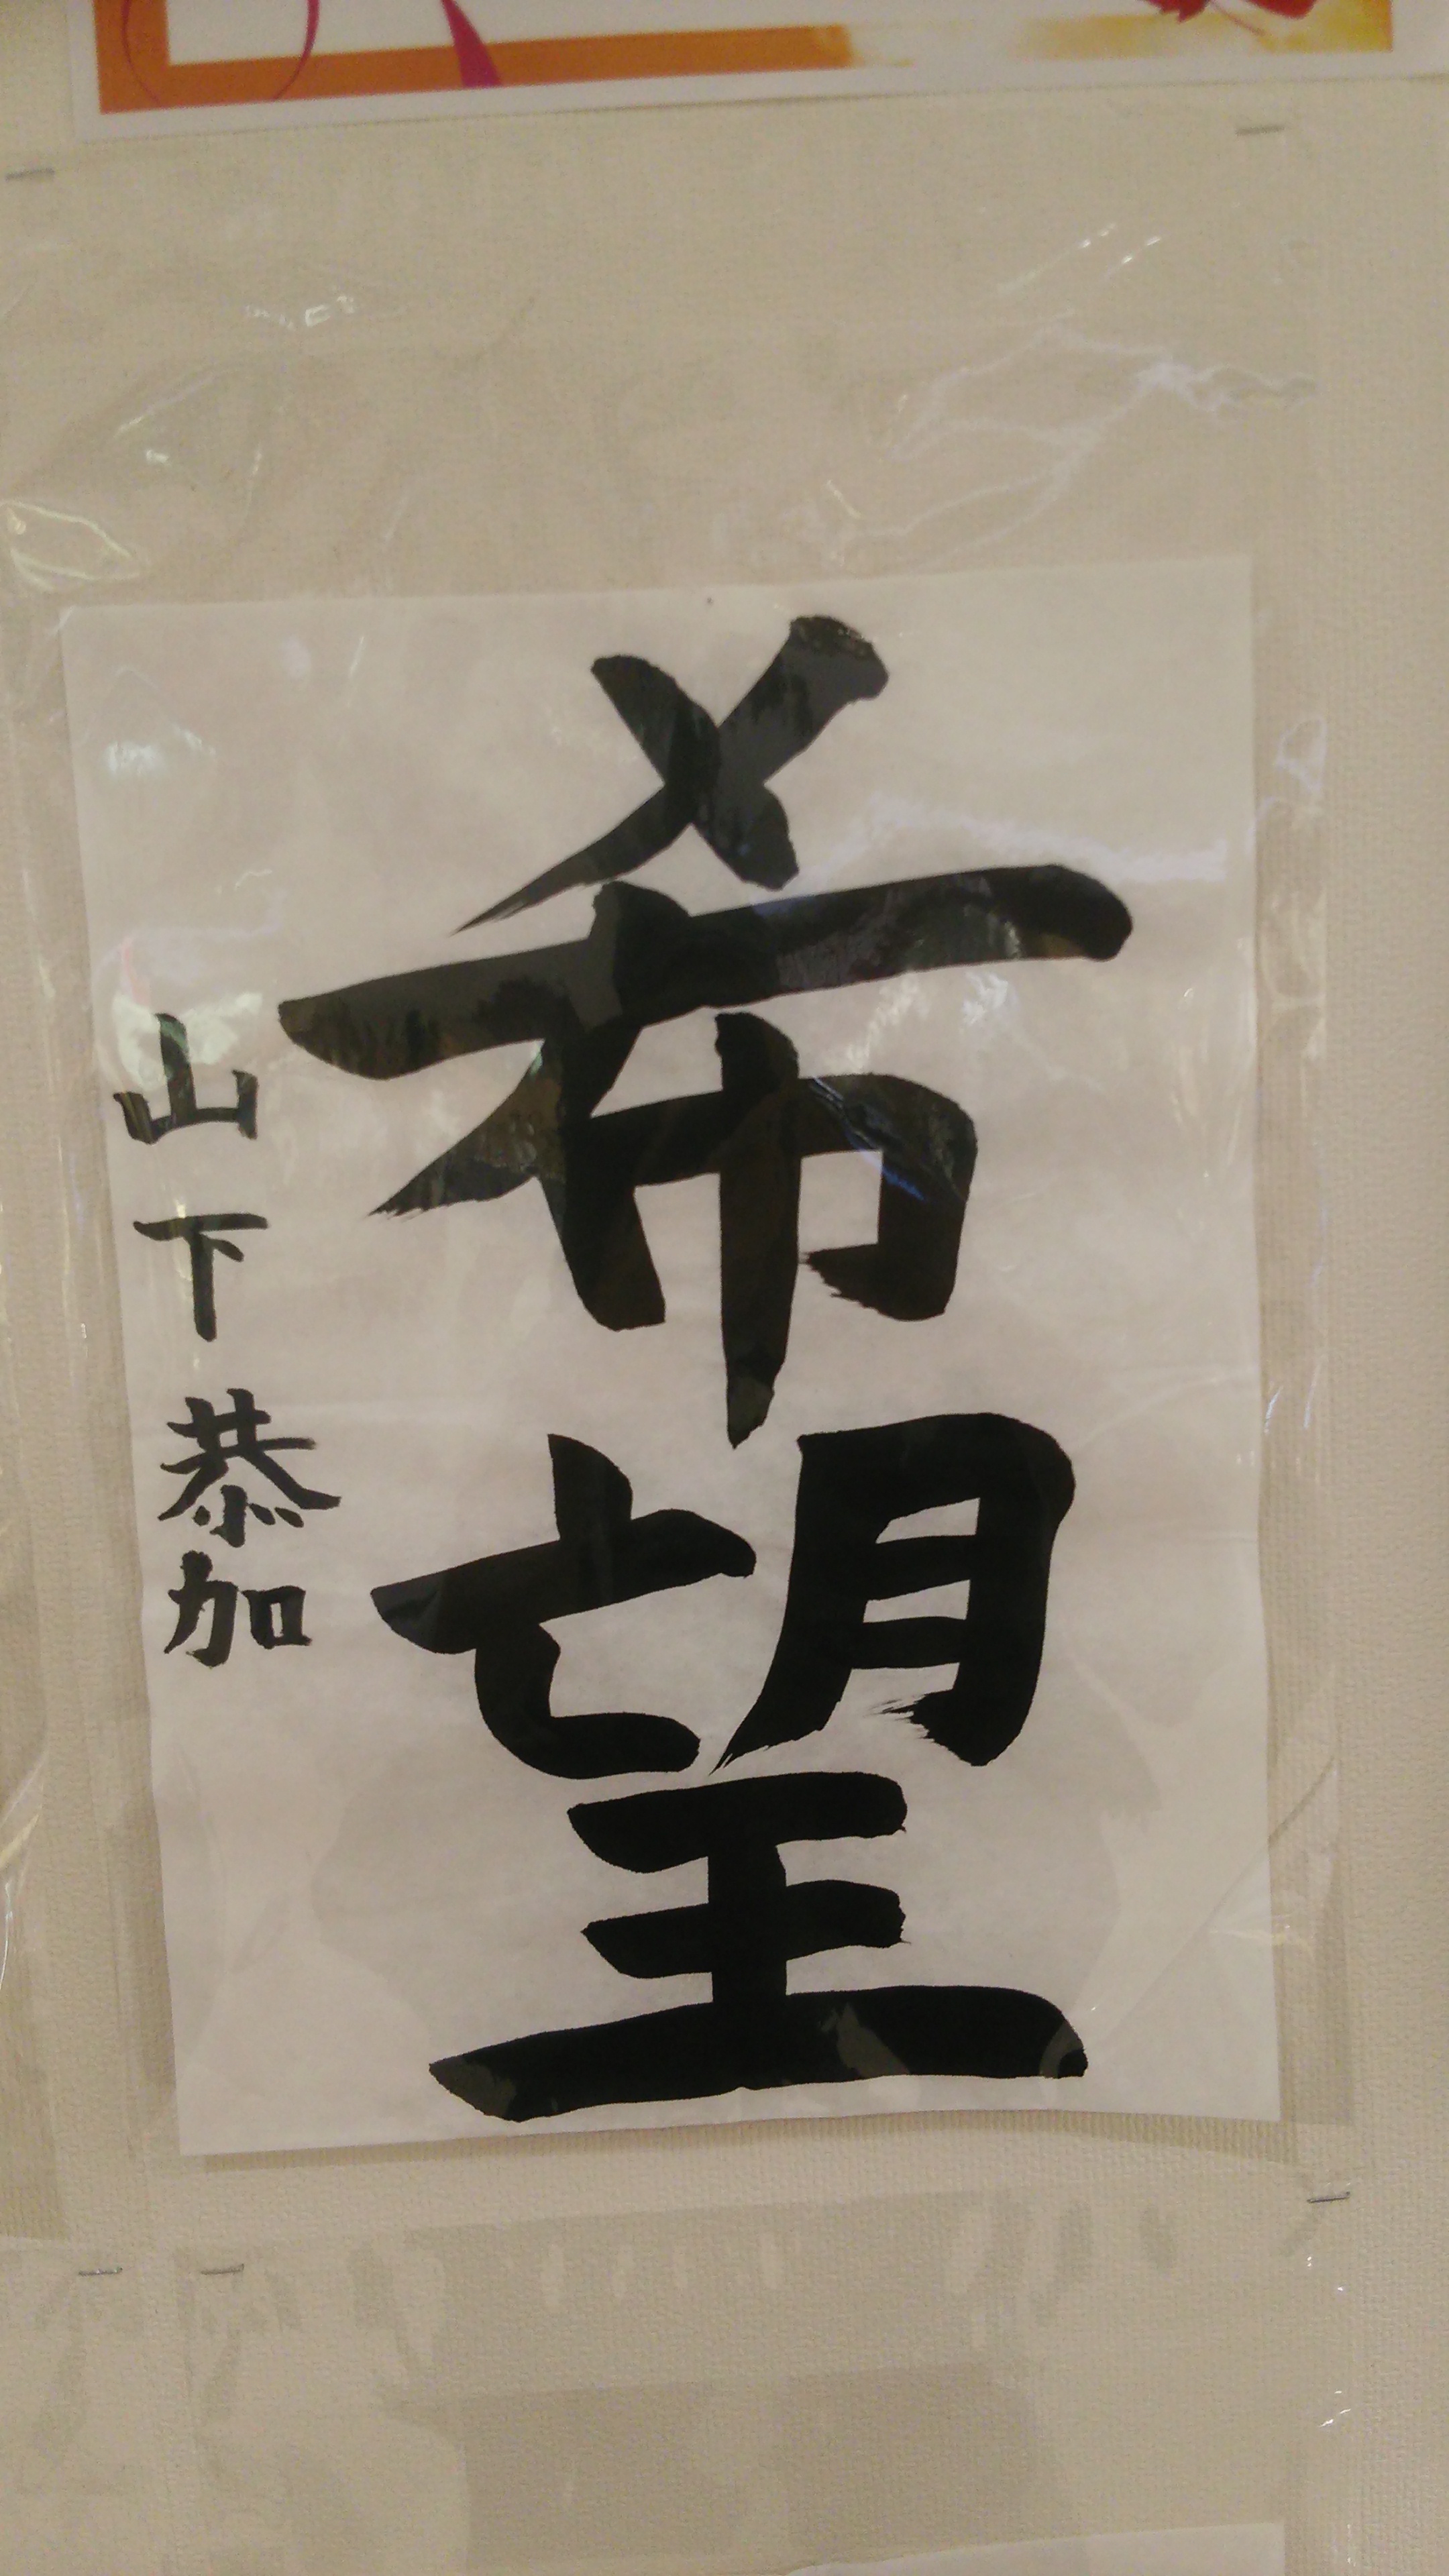 希望
山下恭加